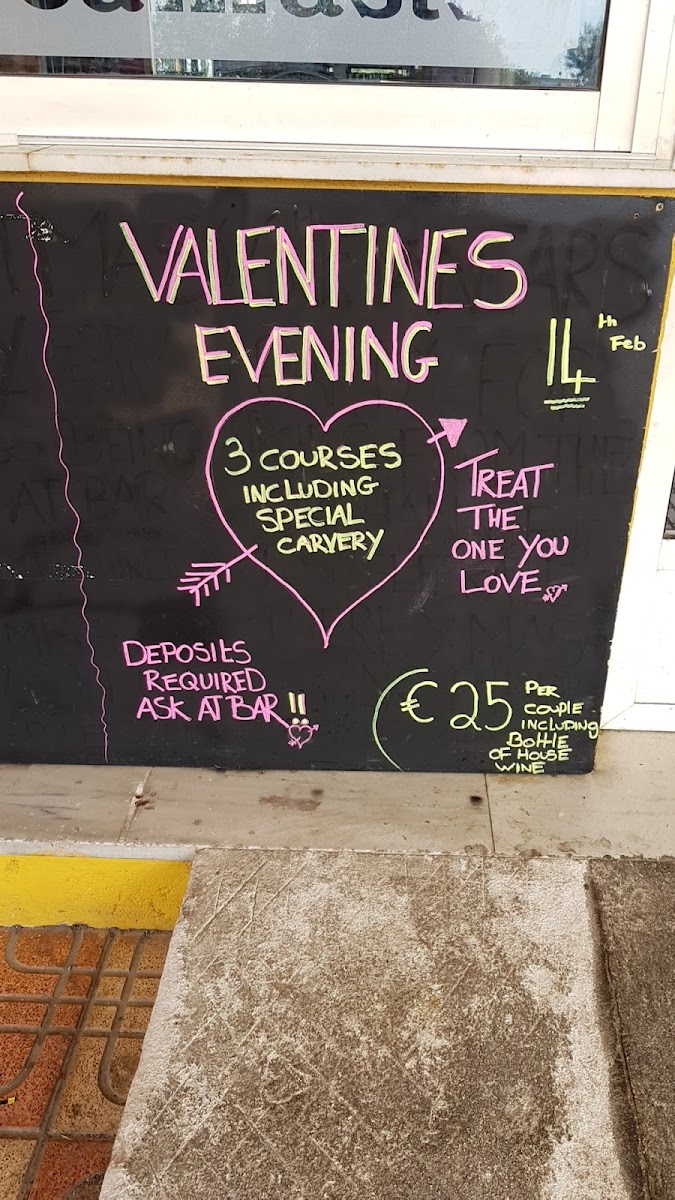 VALENTINES
EVENING
14th Feb
3 COURSES
INCLUDING
SPECIAL
CARVERY
TREAT
THE
ONE YOU
LOVE
DEPOSITS
REQUIRED
ASK AT BAR !!
€25 PER
COUPLE
INCLUDING
BOTTLE
OF HOUSE
WINE